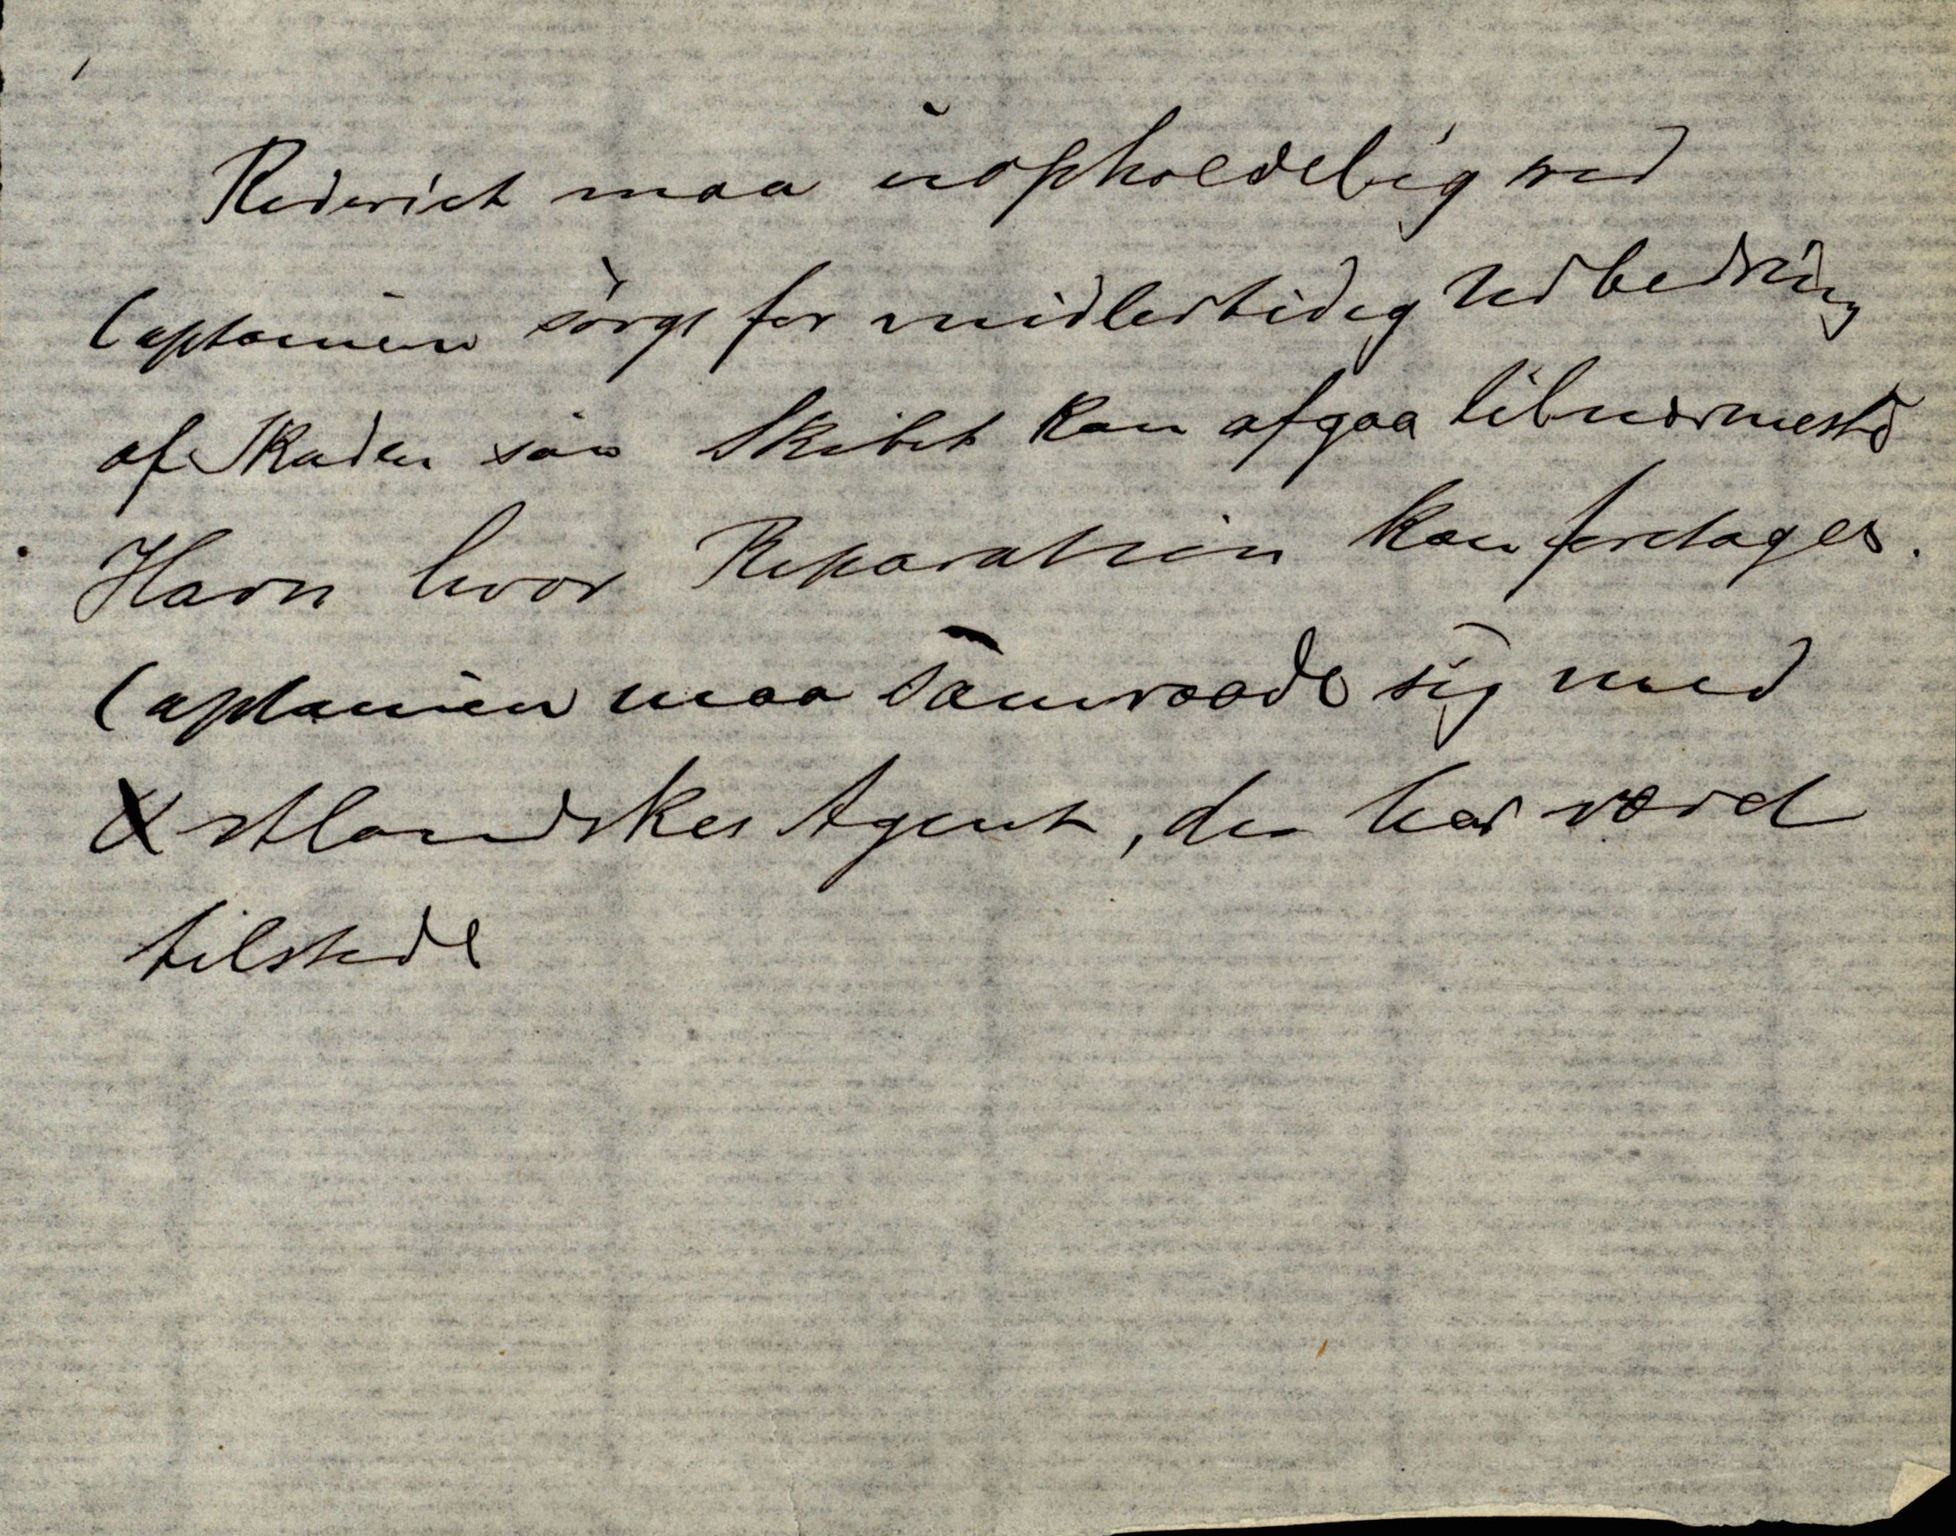 Rederiet maa uopholdelig ved
Captainen sørge for midlertidig Udbedring
af Skaden saa Skibet kan afgaa til nærmeste
Havn hvor Reparation kan foretages.
Captainen maa samraade sig med
Agent, der har været
tilstede